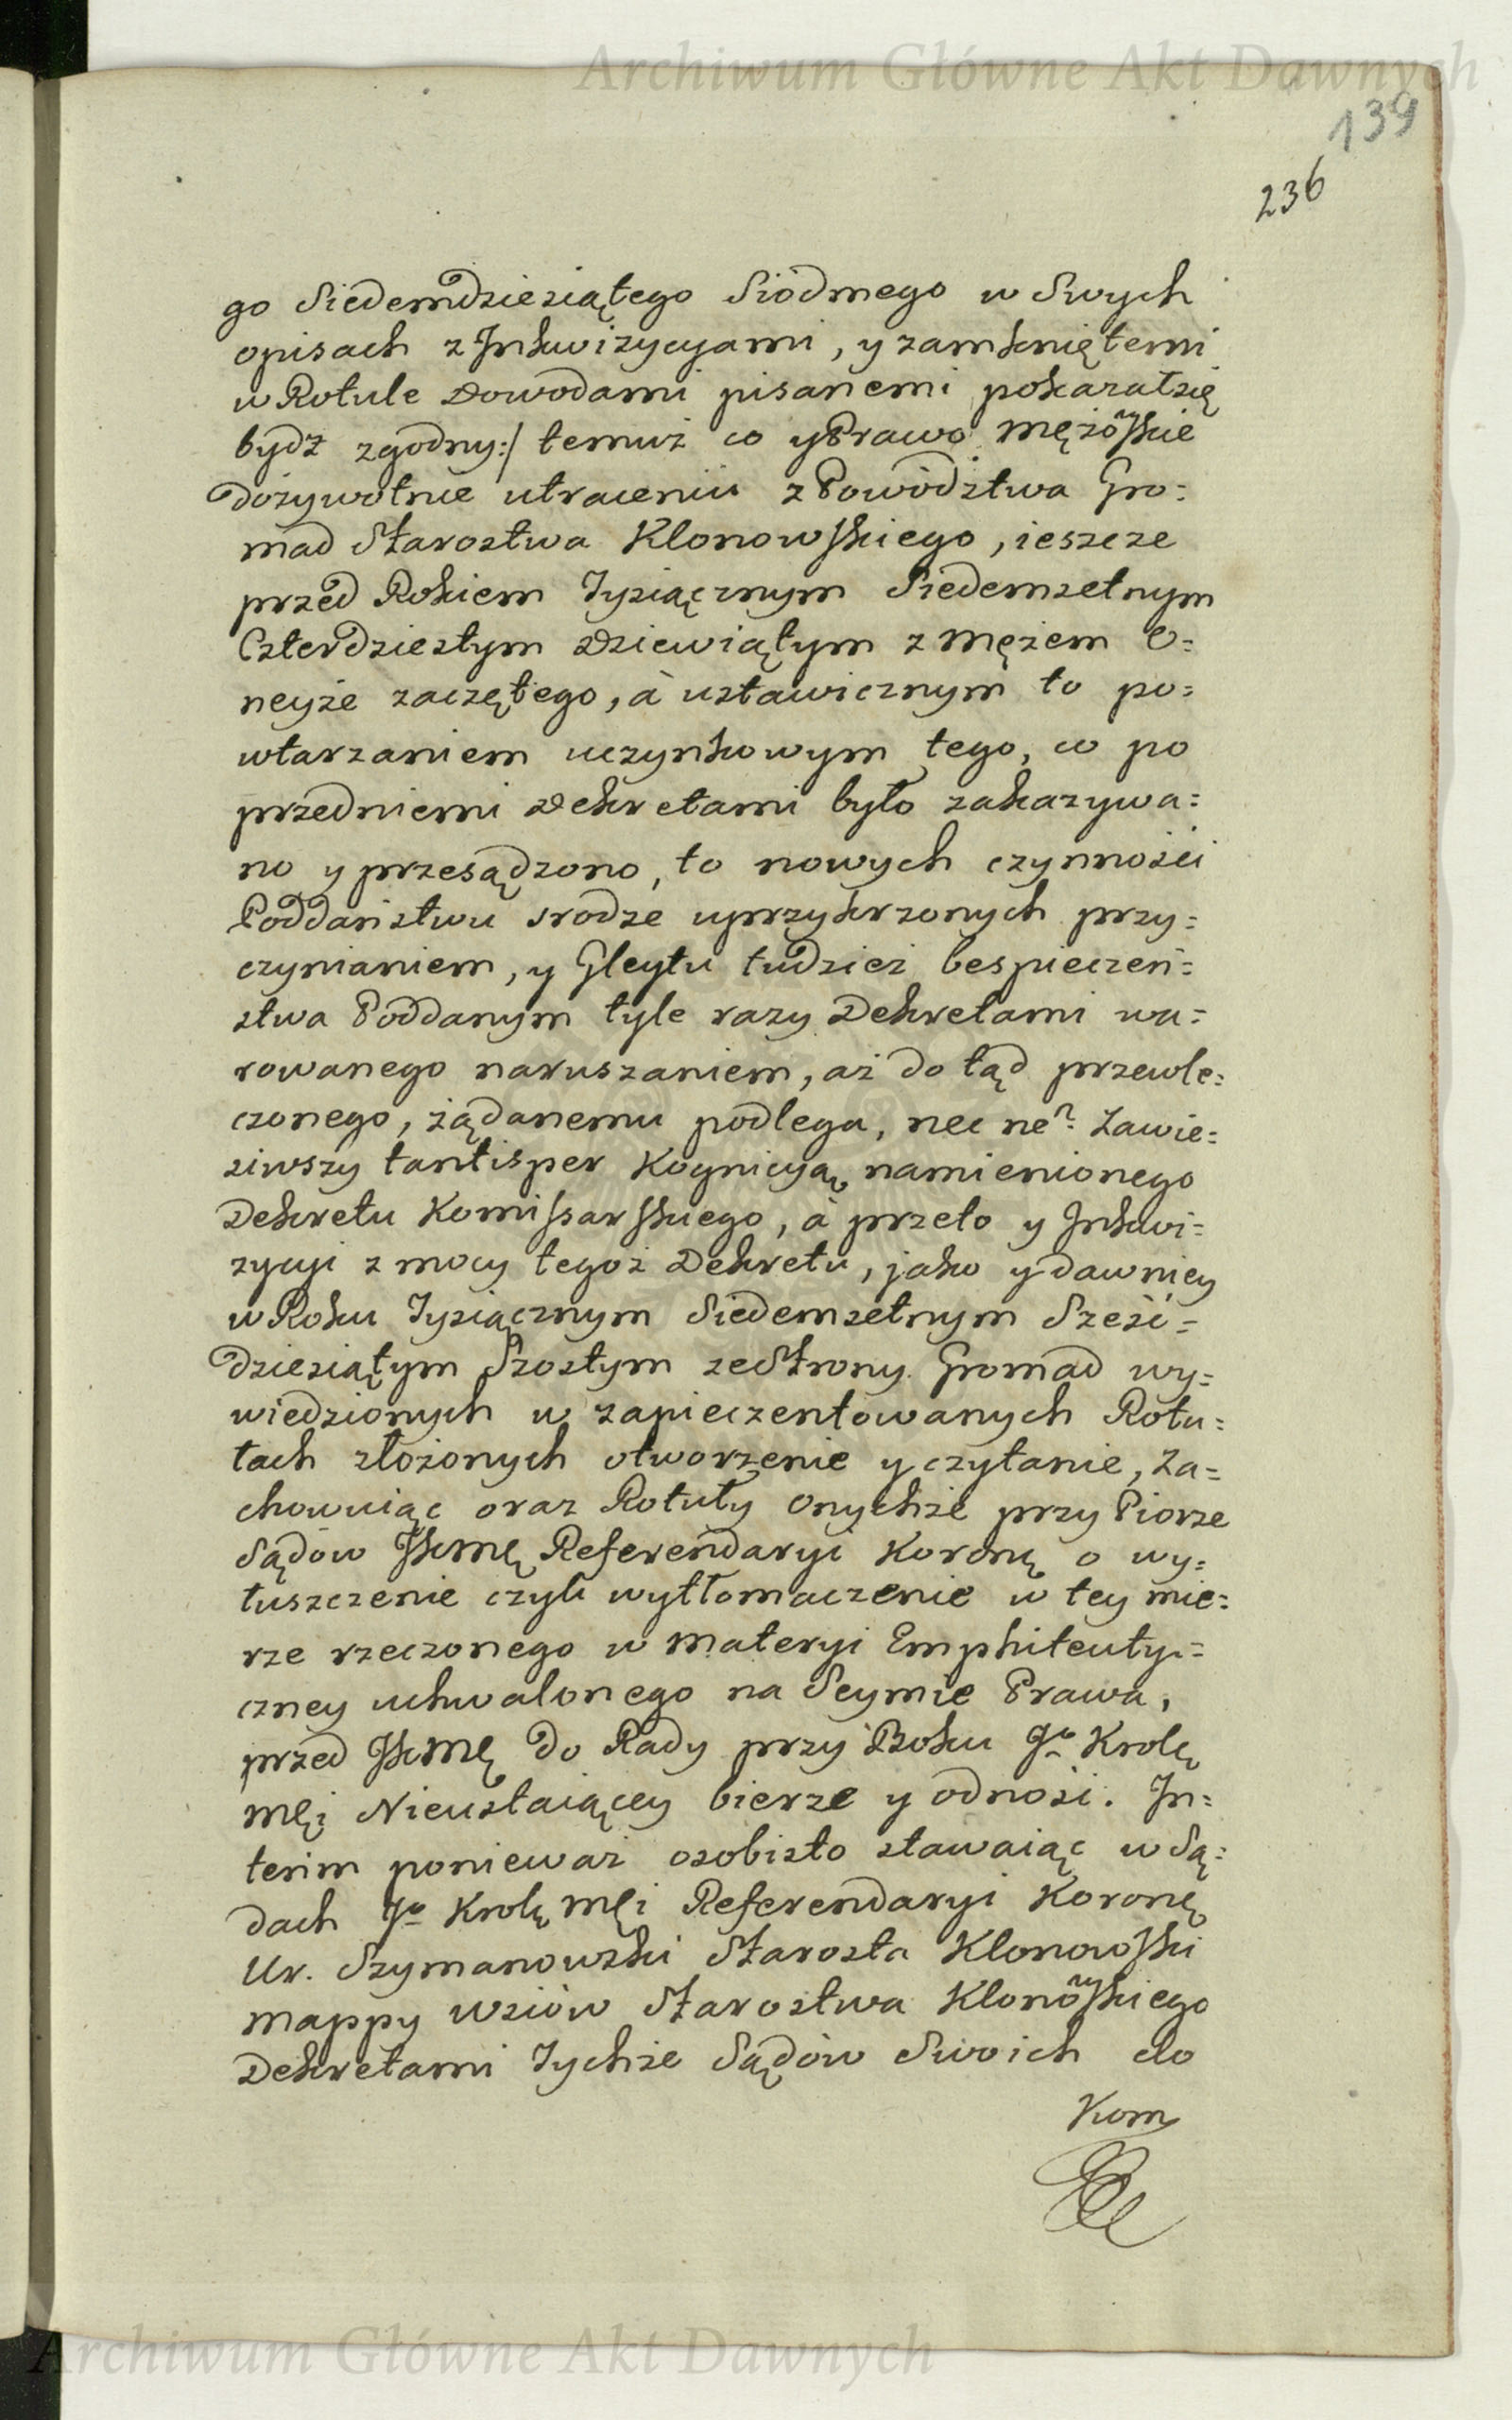 Archiwum Główne Akt Dawnych
139
236
go Siedemdziesiątego Siódmego w Swych
opisach z Inkwizycyjami, y zamkniętemi
w Rotule Dowodami pisanemi pokazałsię
bydź zgodny:/ temuż co y Prawo mężowskie
Dożywotnie utraceniu z Powództwa Gro=
mad Starostwa Klonowskiego, ieszcze
przed Rokiem Tysiącznym Siedemsetnym
Czterdziestym Dziewiątym z mężem O=
neyże zaczętego, à ustawicznym to po=
wtarzaniem uczynkowym tego, co po
przedniemi Dekretami było zakazywa=
no y przesądzono, to nowych czynności
Poddaństwu srodze uprzykrzonych przy=
czynianiem, y Gleytu tudzież bespieczeń=
stwa Poddanym tyle razy Dekretami wa=
rowanego naruszaniem, aż do tąd przewle=
czonego, żądanemu podlega, nec ne? Zawie=
siwszy tantisper Kognicyą namienionego
Dekretu Komissarskiego, à przeto y Inkwi=
zycyi z mocy tegoż Dekretu, jako y dawniey
w Roku Tysiącznym Siedemsetnym Sześć=
dziesiątym Szostym ze Strony Gromad wy=
wiedzionych w zapieczentowanych Rotu=
łach złożonych otworzenie y czytanie, Za=
chowuiąc oraz Rotuły Onychże przy Piorze
Sądow JkMę Referendaryi Koronę o wy=
łuszczenie czyli wytłomaczenie w tey mie=
rze rzeczonego w Materyi Emphiteuty=
czney uchwalonego na Seymie Prawa,
przed JkMę do Rady przy Boku Jo Krolę
Męi Nieustaiącey bierze y odnosi. In=
terim ponieważ osobisto stawaiąc w Są=
dach Jo Krolę Męi Referendaryi Koronę
Ur. Szymanowski Starosta Klonowski
mappy wsiów Starostwa Klonowskiego
Dekretami Tychże Sądów Swoich do
Kom
Archiwum Główne Akt Dawnych